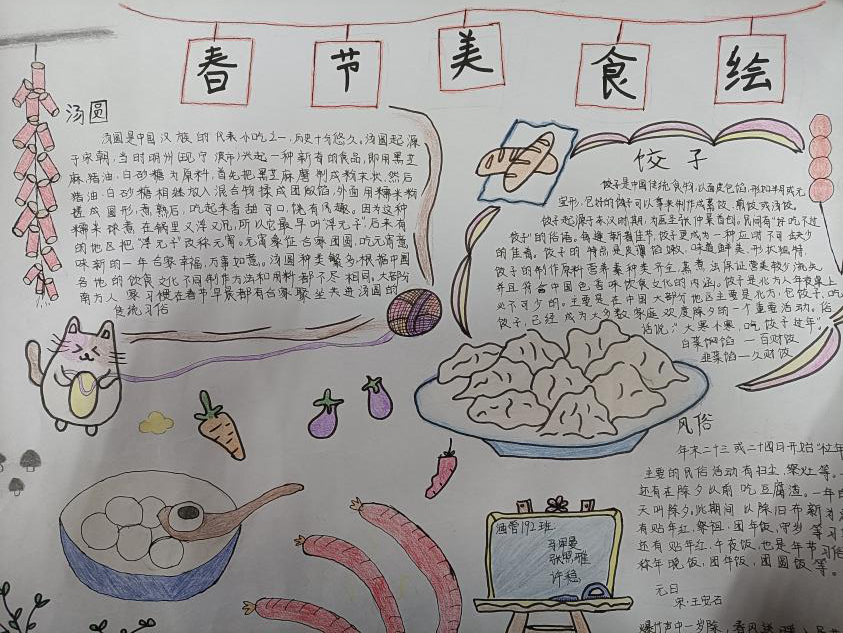 春节美食绘
汤圆
汤圆是中国汉族的代表小吃之一,历史十分悠久。汤圆起源
于宋朝,当时明州(现宁波市)兴起一种新奇的食品,即用黑芝
麻、猪油、白砂糖为原料,首先把黑芝麻磨制成粉末状,然后
猪油、白砂糖相继放入混合物揉成团做馅,外面用糯米粉
搓成圆形,煮熟后,吃起来香甜可口,饶有风趣。因为这种
糯米球煮在锅里又浮又沉,所以它最早叫"浮元子",后来有
的地区把"浮元子"改称元宵。元宵象征合家团圆吃元宵意
味新的一年合家幸福,万事如意。汤圆种类繁多根据中国
各地的饮食文化不同制作方法和用料都不尽相同,大部分
南方人家习惯在春节早晨都有合家聚坐共进汤圆的
传统习俗
饺子
饺子是中国传统食物,以面皮包馅,形如半月或元
宝形,包好的饺子可以拿来制作成蒸饺、煎饺或汤饺。
饺子起源于东汉时期,为医圣张仲景首创。民间有"好吃不过
饺子"的俗语。每逢新春佳节,饺子更成为一种应时不可缺少
的佳肴。饺子的特点是皮薄馅嫩,味道鲜美,形状独特,
饺子的制作原料营养素种类齐全,蒸煮法保证营养较少流失,
并且符合中国色香味饮食文化的内涵。饺子是北方人年夜桌上
必不可少的。主要是在中国大部分地区主要是北方,包饺子,吃
饺子,已经成为大多数家庭欢度除夕的一个重要活动。俗
话说,"大寒小寒,吃饺子过年"
白菜饺馅 一百财饭
韭菜馅一久财饭
风俗
年末二十三或二十四日开始"过年
主要的民俗活动有扫尘、祭灶等。
还有在除夕以前吃豆腐渣。一年的
天叫除夕,此期间以除旧布新为
有贴年红、祭祖、团年饭、守岁等习
还有贴年红、午夜饭,也是年节习俗
称年晚饭、团年饭、团圆饭等。
元日
宋·王安石
爆竹声中一岁除,春风送暖入
192班
许稳